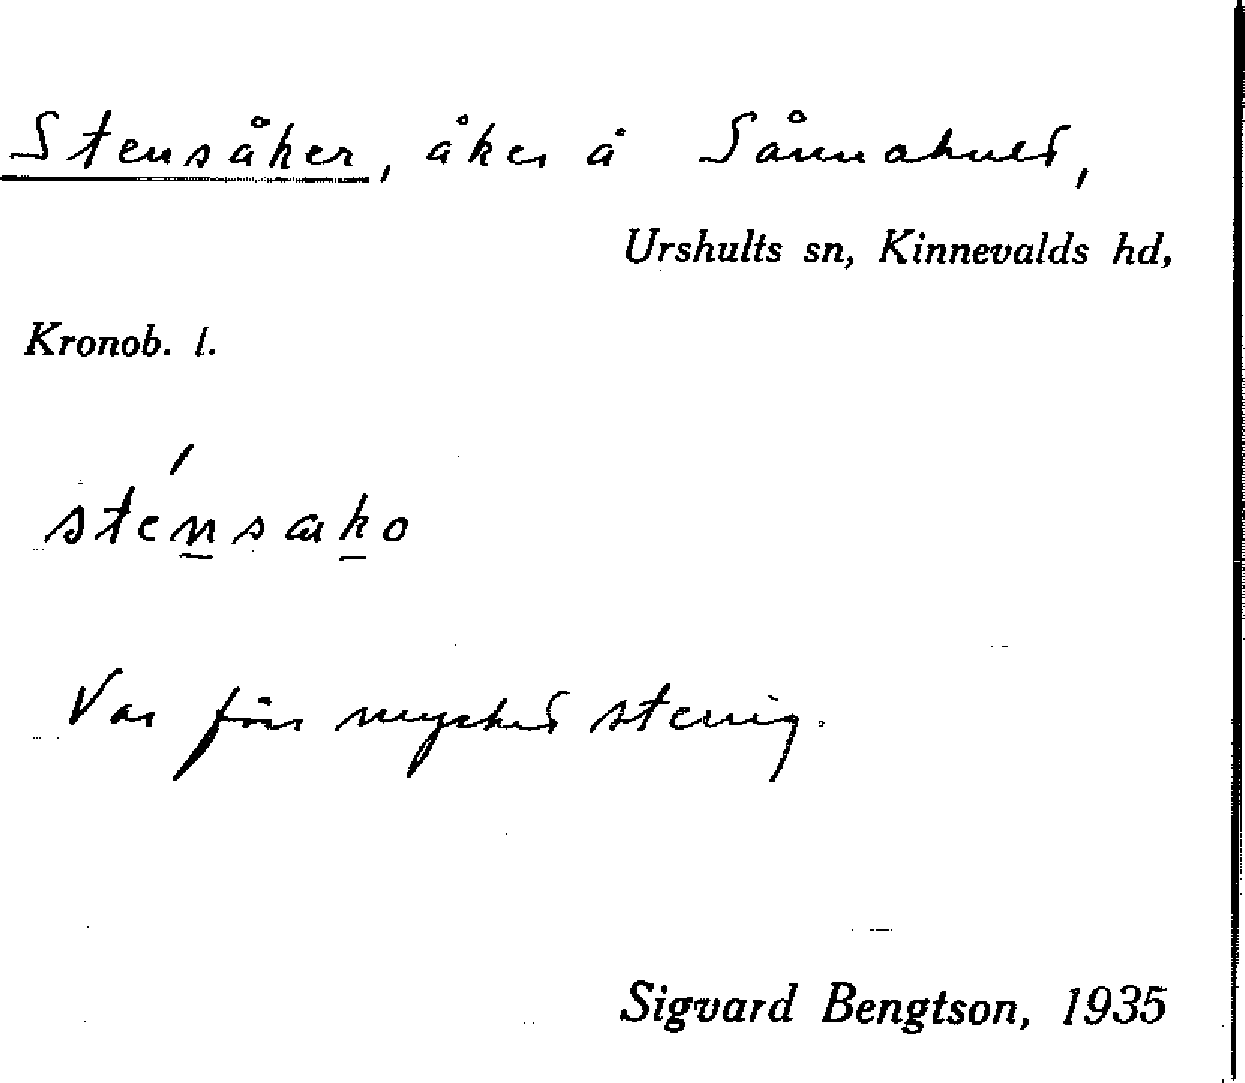 Stensåker, åker å Sånnahult,
Urshults sn, Kinnevalds hd,
Kronob. l.
sténsako
Var förr mycket stenig.
Sigvard Bengtson, 1935